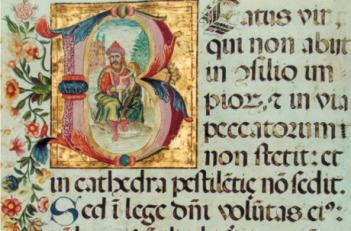 Beatus vir,
qui non abiit
in ꝯsilio im
pioꝝ, ⁊ in via
peccatorum
non stetit: et
in cathedra pestilētie nō sedit.
Sed ī lege dn̄i volūtas eiꝰ: